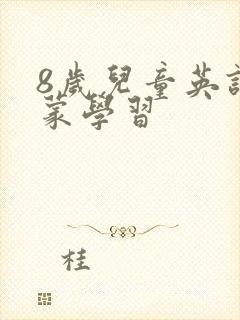 8歲兒童英
蒙學習
桂